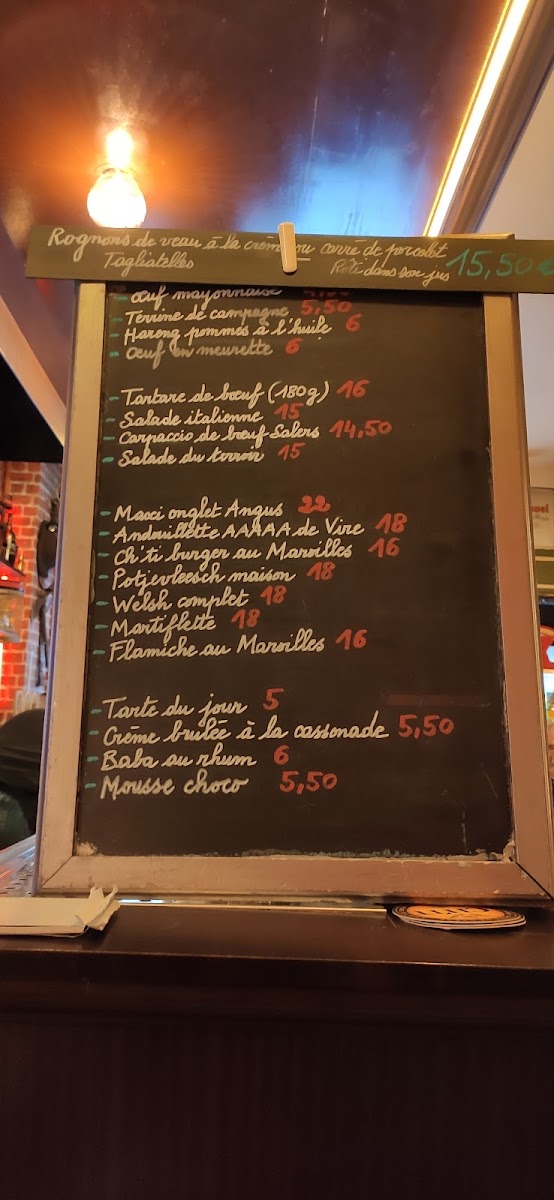 Rognons de veau à la crème ou carré de porcelet
Tagliatelles Roti dans son jus 15,50€
- œuf mayonnaise
- Terrine de campagne 5,50
- Hareng pommes à l'huile 6
- Oeuf en meurette 6
- Tartare de bœuf (180g) 16
- Salade italienne 15
- Carpaccio de bœuf Salers 14,50
- Salade du terroir 15
- Maxi onglet Angus 22
- Andouillette AAAAA de Vire 18
- Ch'ti burger au Maroilles 16
- Potjevleesch maison 18
- Welsh complet 18
- Martiflette 18
- Flamiche au Maroilles 16
- Tarte du jour 5
- Crème brulée à la cassonade 5,50
- Baba au rhum 6
- Mousse choco 5,50